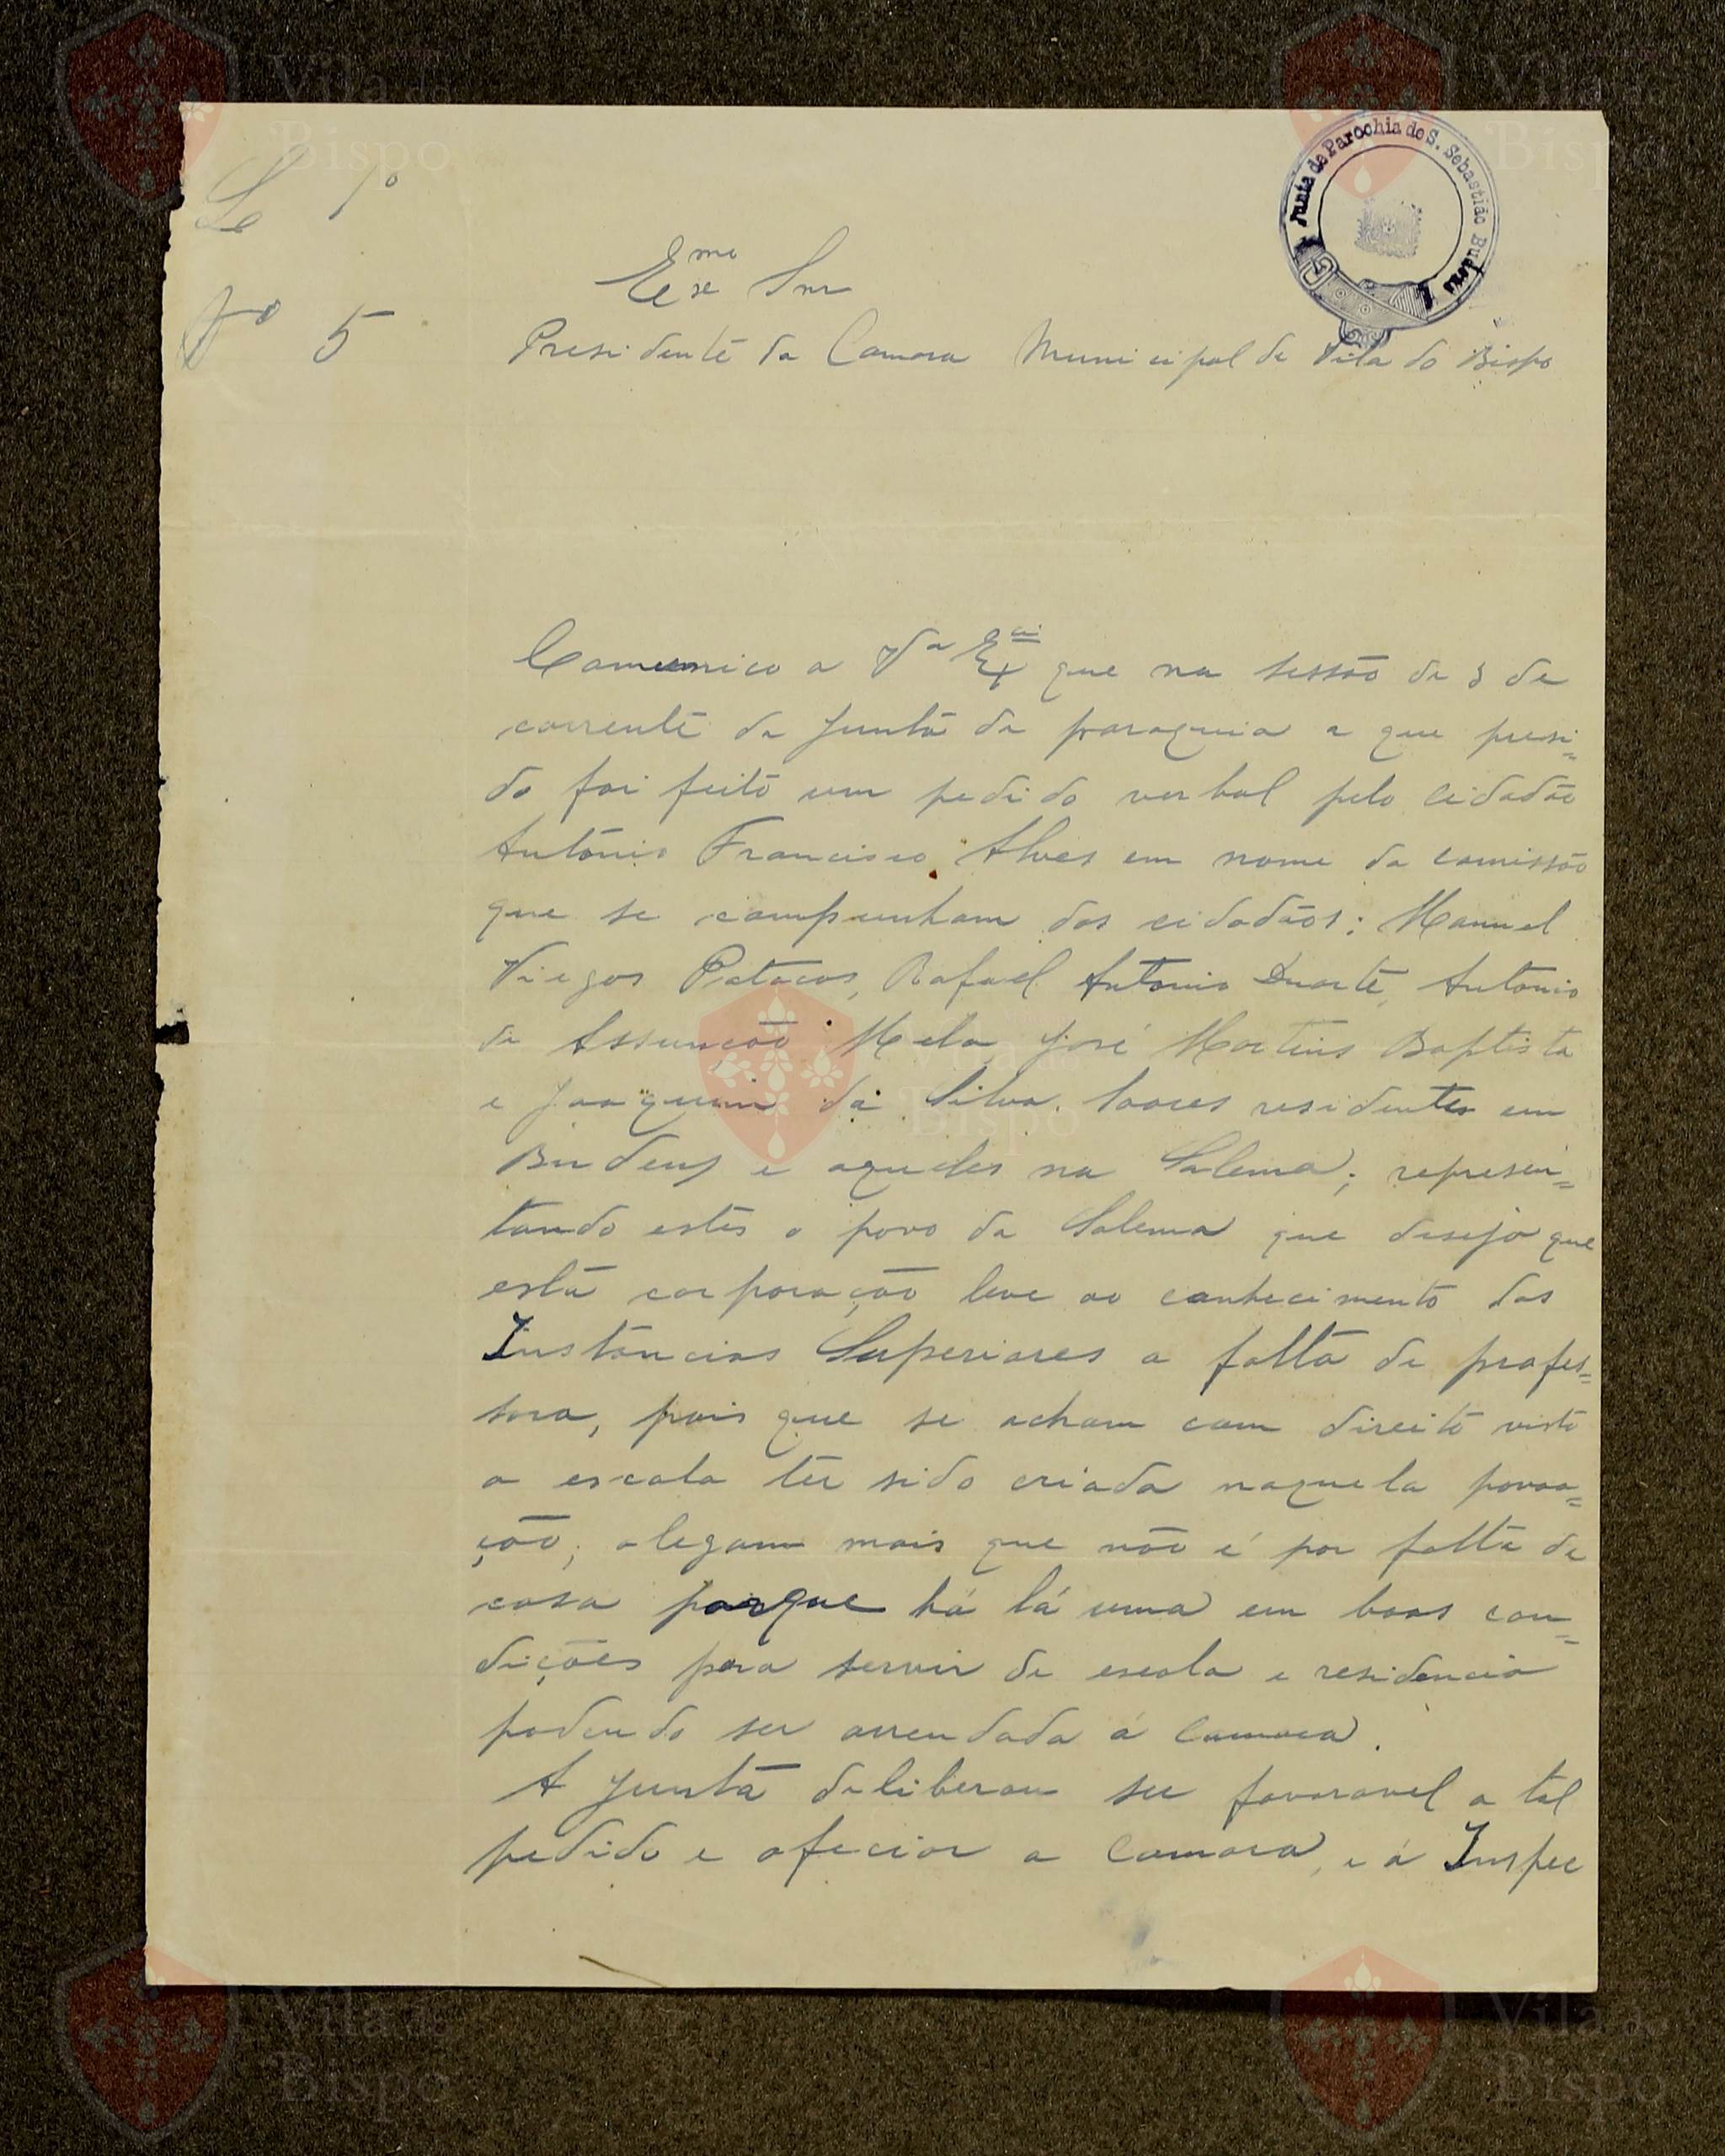 Junta de Parochia de S. Sebastião Budens
Lº 1º
Nº 5
Exmo Snr
Presidente da Camara Municipal de Vila do Bispo
Comunico a Vª Exci que na sessão de 3 de
corrente da Junta da paroquia a que presi=
do foi feito um pedido verbal pelo cidadão
António Francisco Alves em nome da comissão
que se compunham dos cidadãos: Manuel
Viegas Patacos, Rafael Antonio Duarte, Antonio
da Assunção Mela, José Martins Baptista
e Joaquim da Silva. Soares residentes em
Budens e aqueles na Salema; represen=
tando estes o povo da Salema que deseja que
esta corporação leve ao conhecimento das
Instâncias Superiores a falta de profes=
sora, pois que se acham com direito visto
a escola ter sido criada naquela povoa=
ção; alegam mais que não é por falta de
casa porque há lá uma em boas con=
dições para servir de escola e residencia
podendo ser arrendada á Camara.
A Junta deliberou ser favoravel a tal
pedido e oficiar a Camara, e á Inspec
Vila do Bispo
Vila do Bispo
Vila do Bispo
Vila do Bispo
Vila do Bispo